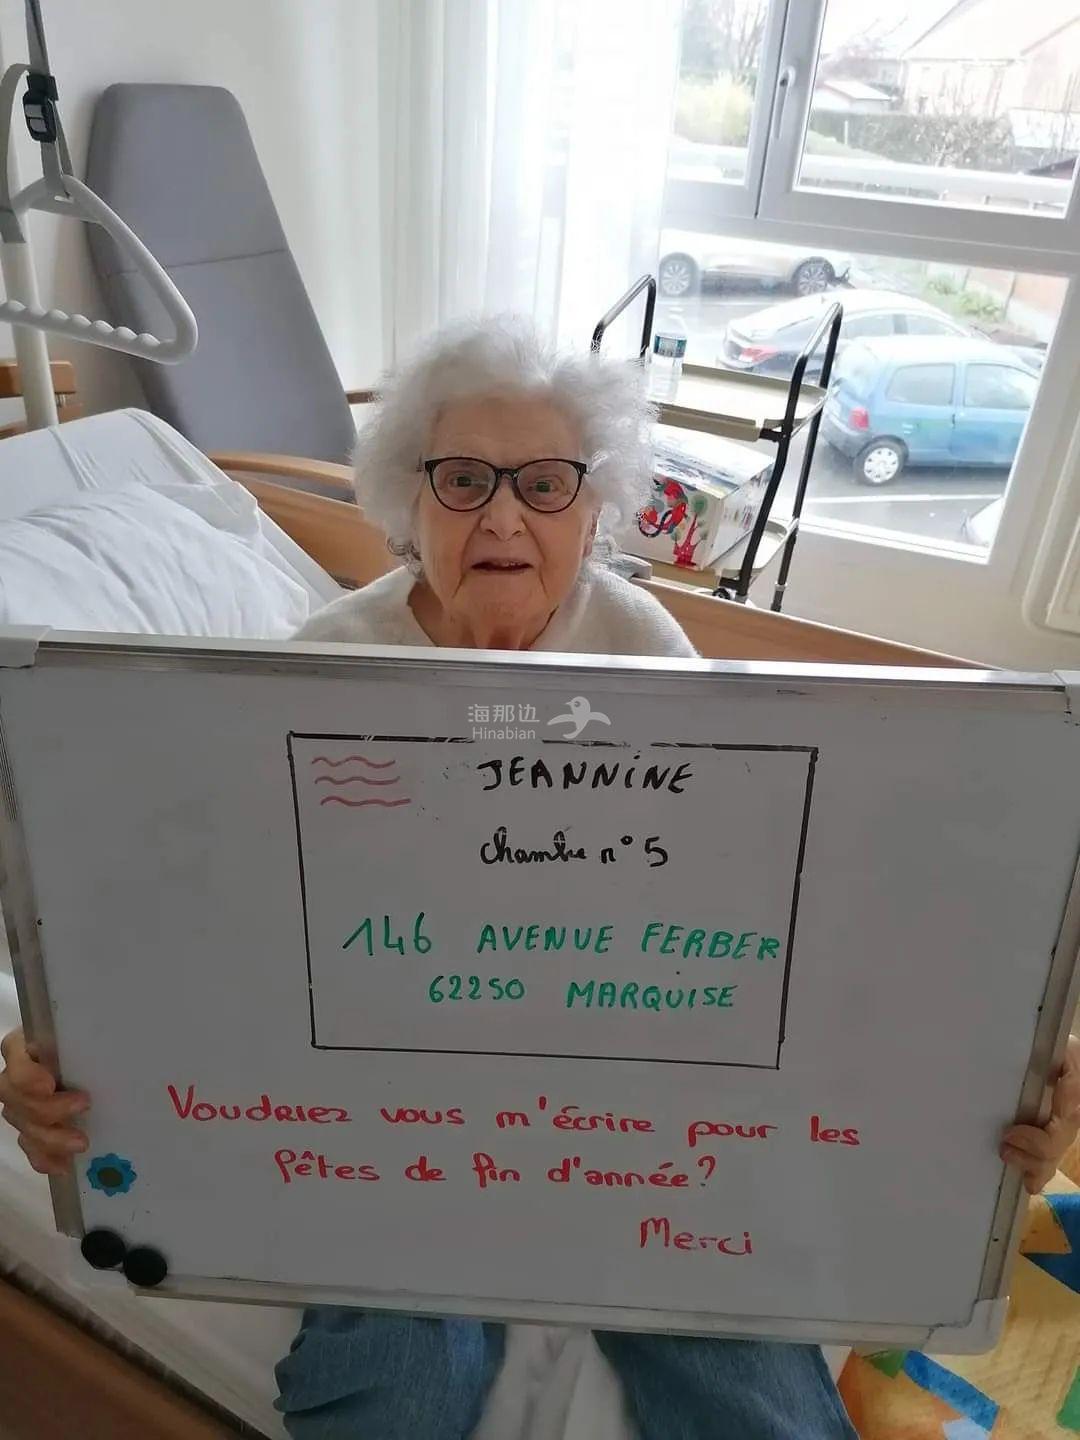 海那边
Hinabian
JEANNINE
Chambre n° 5
146 AVENUE FERBER
62250 MARQUISE
Voudriez vous m'écrire pour les
fêtes de fin d'année?
Merci